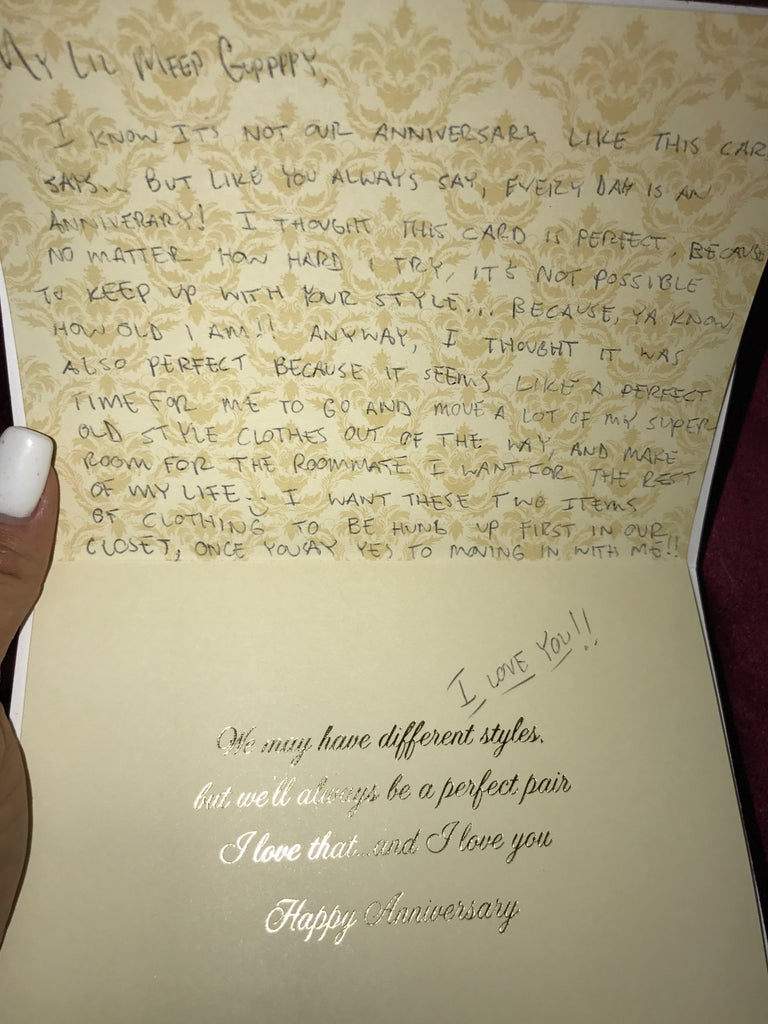 MY LIL MEEP GUPPPPY,
I KNOW IT'S NOT OUR ANNIVERSARY LIKE THIS CAR
SAYS... BUT LIKE YOU ALWAYS SAY, EVERY DAY IS AN
ANNIVERARY! I THOUGHT THIS CARD IS PERFECT, BECAUSE
NO MATTER HOW HARD I TRY, IT'S NOT POSSIBLE
TO KEEP UP WITH YOUR STYLE... BECAUSE, YA KNOW,
HOW OLD I AM!! ANYWAY, I THOUGHT IT WAS
ALSO PERFECT BECAUSE IT SEEMS LIKE A PERFECT
TIME FOR ME TO GO AND MOVE A LOT OF MY SUPER
OLD STYLE CLOTHES OUT OF THE WAY, AND MAKE
ROOM FOR THE ROOMMATE I WANT FOR THE REST
OF MY LIFE... I WANT THESE TWO ITEMS
OF CLOTHING TO BE HUNG UP FIRST IN OUR
CLOSET, ONCE YOU SAY YES TO MOVING IN WITH ME!!
I LOVE YOU!!
We may have different styles,
but we'll always be a perfect pair
I love that...and I love you
Happy Anniversary